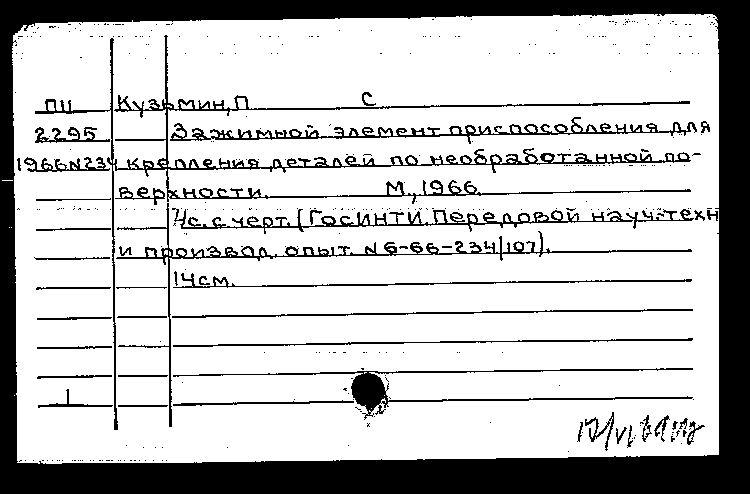 ПЦ Кузьмин, П С
2295 Зажимной элемент приспособления для
1966N234 крепления деталей по необработанной по-
верхности. М., 1966.
4с. с черт. (ГОСИНТИ. Передовой науч.-техн
и производ. опыт. N 6-66-234/107).
14см.
1